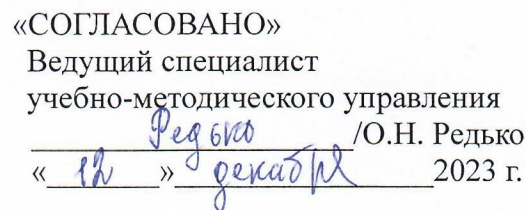 «СОГЛАСОВАНО»
Ведущий специалист
учебно-методического управления
Редько /О.Н. Редько
« 12 » декабря 2023 г.